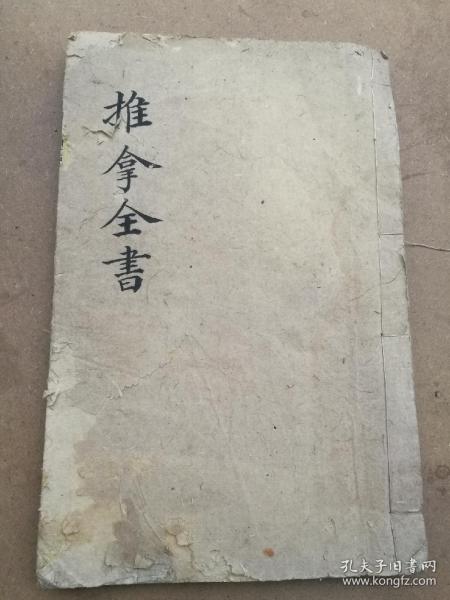 推拿全書
孔夫子旧书网
www.kongfz.com